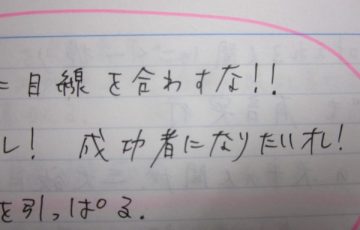 ニ目線を合わすな!!
レ! 成功者になりたいオレ!
を引っぱる.